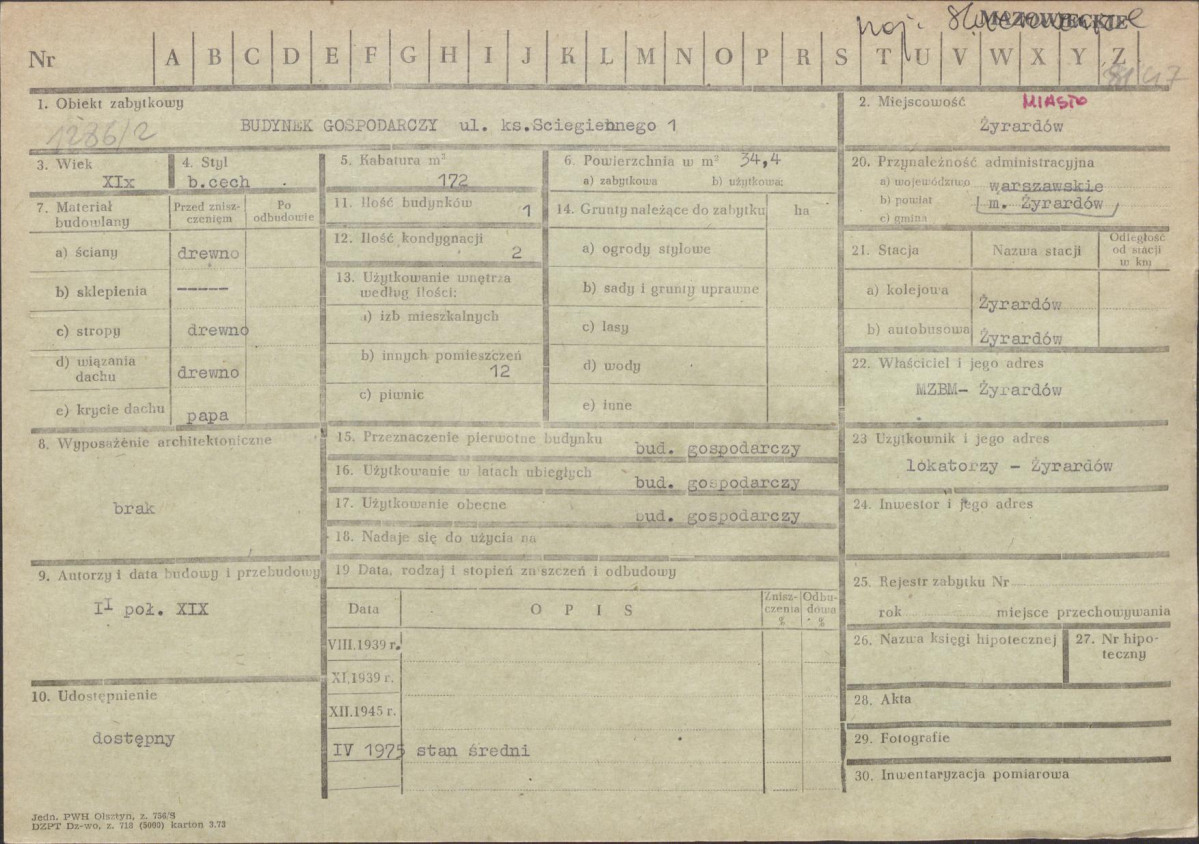 woj. MAZOWIECKIE
Nr A B C D E F G H I J K L M N O P R S T U V W X Y Z
1. Obiekt zabytkowy
1286/2
BUDYNEK GOSPODARCZY ul. ks.Sciegiennego 1
2. Miejscowość MIASTO
Żyrardów
3. Wiek
XIx
4. Styl
b.cech .
5. Kabatura m³
172
6. Powierzchnia w m² 34,4
a) zabytkowa b) użytkowa:
20. Przynależność administracyjna
a) województwo warszawskie
b) powiat m. Żyrardów
c) gmina
7. Materiał budowlany
Przed zniszczeniem
Po odbudowie
a) ściany drewno
b) sklepienia -----
c) stropy drewno
d) wiązania dachu drewno
e) krycie dachu papa
11. Ilość budynków 1
12. Ilość kondygnacji
2
13. Użytkowanie wnętrza
według ilości:
a) izb mieszkalnych
b) innych pomieszczeń
12
c) piwnic
14. Grunty należące do zabytku ha
a) ogrody stylowe
b) sady i grunty uprawne
c) lasy
d) wody
e) inne
21. Stacja Nazwa stacji Odległość od stacji w km
a) kolejowa Żyrardów
b) autobusowa Żyrardów
22. Właściciel i jego adres
MZBM- Żyrardów
8. Wyposażenie architektoniczne
brak
15. Przeznaczenie pierwotne budynku bud. gospodarczy
16. Użytkowanie w latach ubiegłych bud. gospodarczy
17. Użytkowanie obecne bud. gospodarczy
18. Nadaje się do użycia na
23 Użytkownik i jego adres
lokatorzy - Żyrardów
24. Inwestor i jego adres
9. Autorzy i data budowy i przebudowy
II poł. XIX
19 Data, rodzaj i stopień zniszczeń i odbudowy
Data O P I S Zniszczenia % Odbudowa %
VIII.1939 r.
XI.1939 r.
XII.1945 r.
IV 1975 stan średni
25. Rejestr zabytku Nr
rok miejsce przechowywania
26. Nazwa księgi hipotecznej
27. Nr hipoteczny
10. Udostępnienie
dostępny
28. Akta
29. Fotografie
30. Inwentaryzacja pomiarowa
Jedn. PWH Olsztyn, z. 756/S
DZPT Dz-wo, z. 710 (5000) karton 3.73